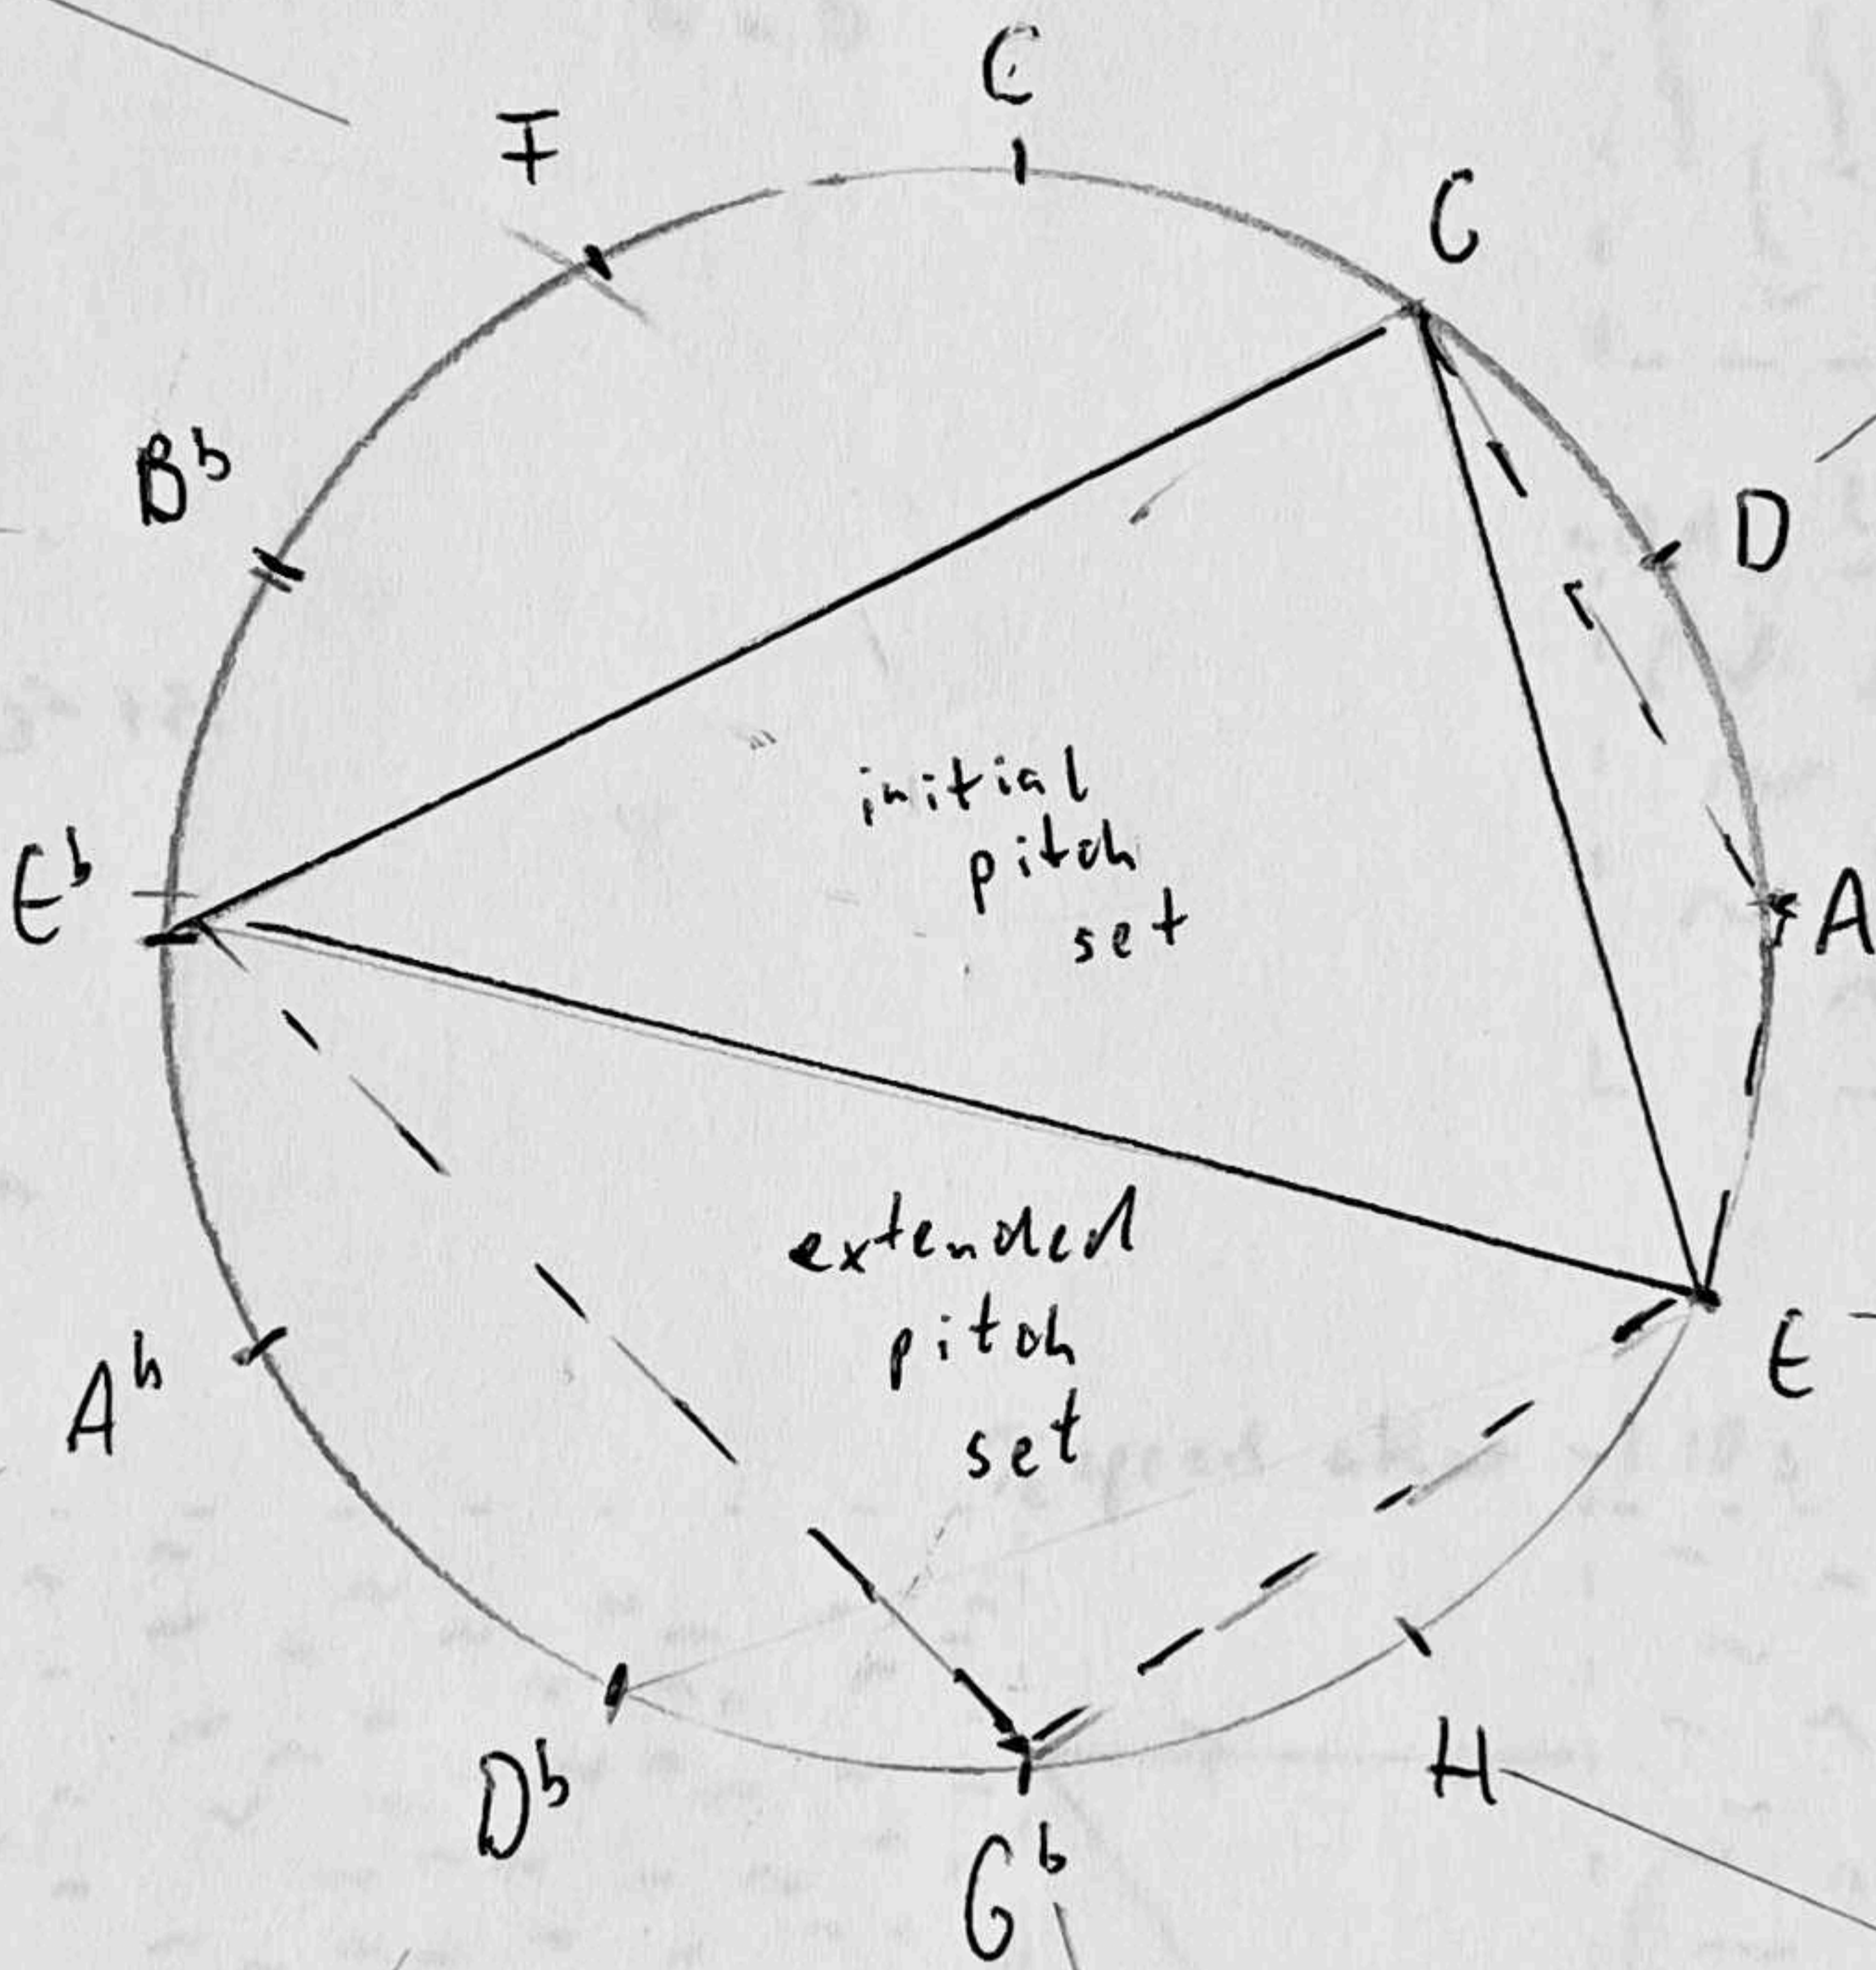 C
F
G
B♭
D
initial
pitch
set
E♭
A
extended
pitch
set
E
A♭
H
D♭
G♭